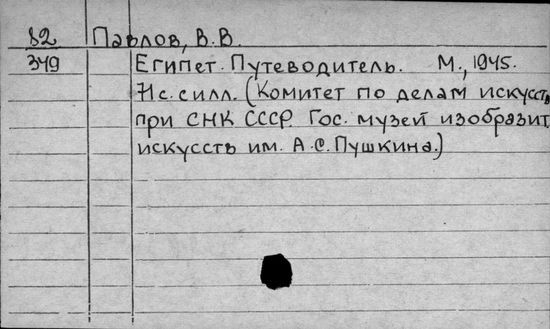 82 Павлов, В.В.
349 Египет. Путеводитель. М., 1945.
71с. с илл. (Комитет по делам искусств
при СНК СССР. Гос. музей изобразит
искусств им. А.С. Пушкина.)